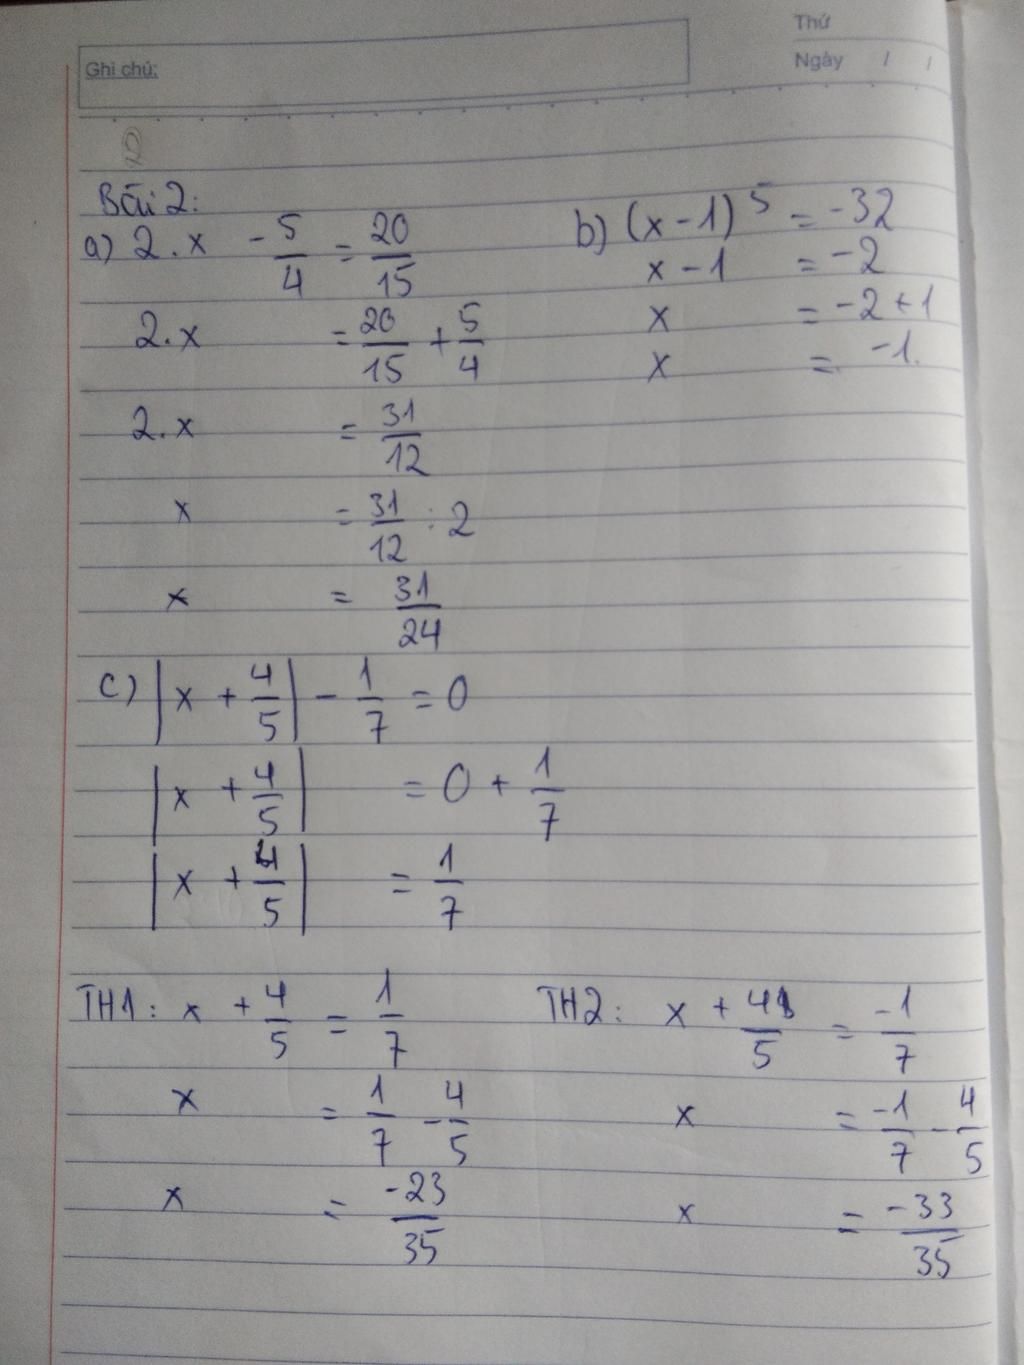 Thứ
Ghi chú:
Ngày / /
2
Bài 2:
a) 2.x - 5/4 = 20/15
2.x = 20/15 + 5/4
2.x = 31/12
x = 31/12 : 2
x = 31/24
b) (x - 1)^5 = -32
x - 1 = -2
x = -2 + 1
x = -1.
c) |x + 4/5| - 1/7 = 0
|x + 4/5| = 0 + 1/7
|x + 4/5| = 1/7
TH1: x + 4/5 = 1/7
x = 1/7 - 4/5
x = -23/35
TH2: x + 4/5 = -1/7
x = -1/7 - 4/5
x = -33/35